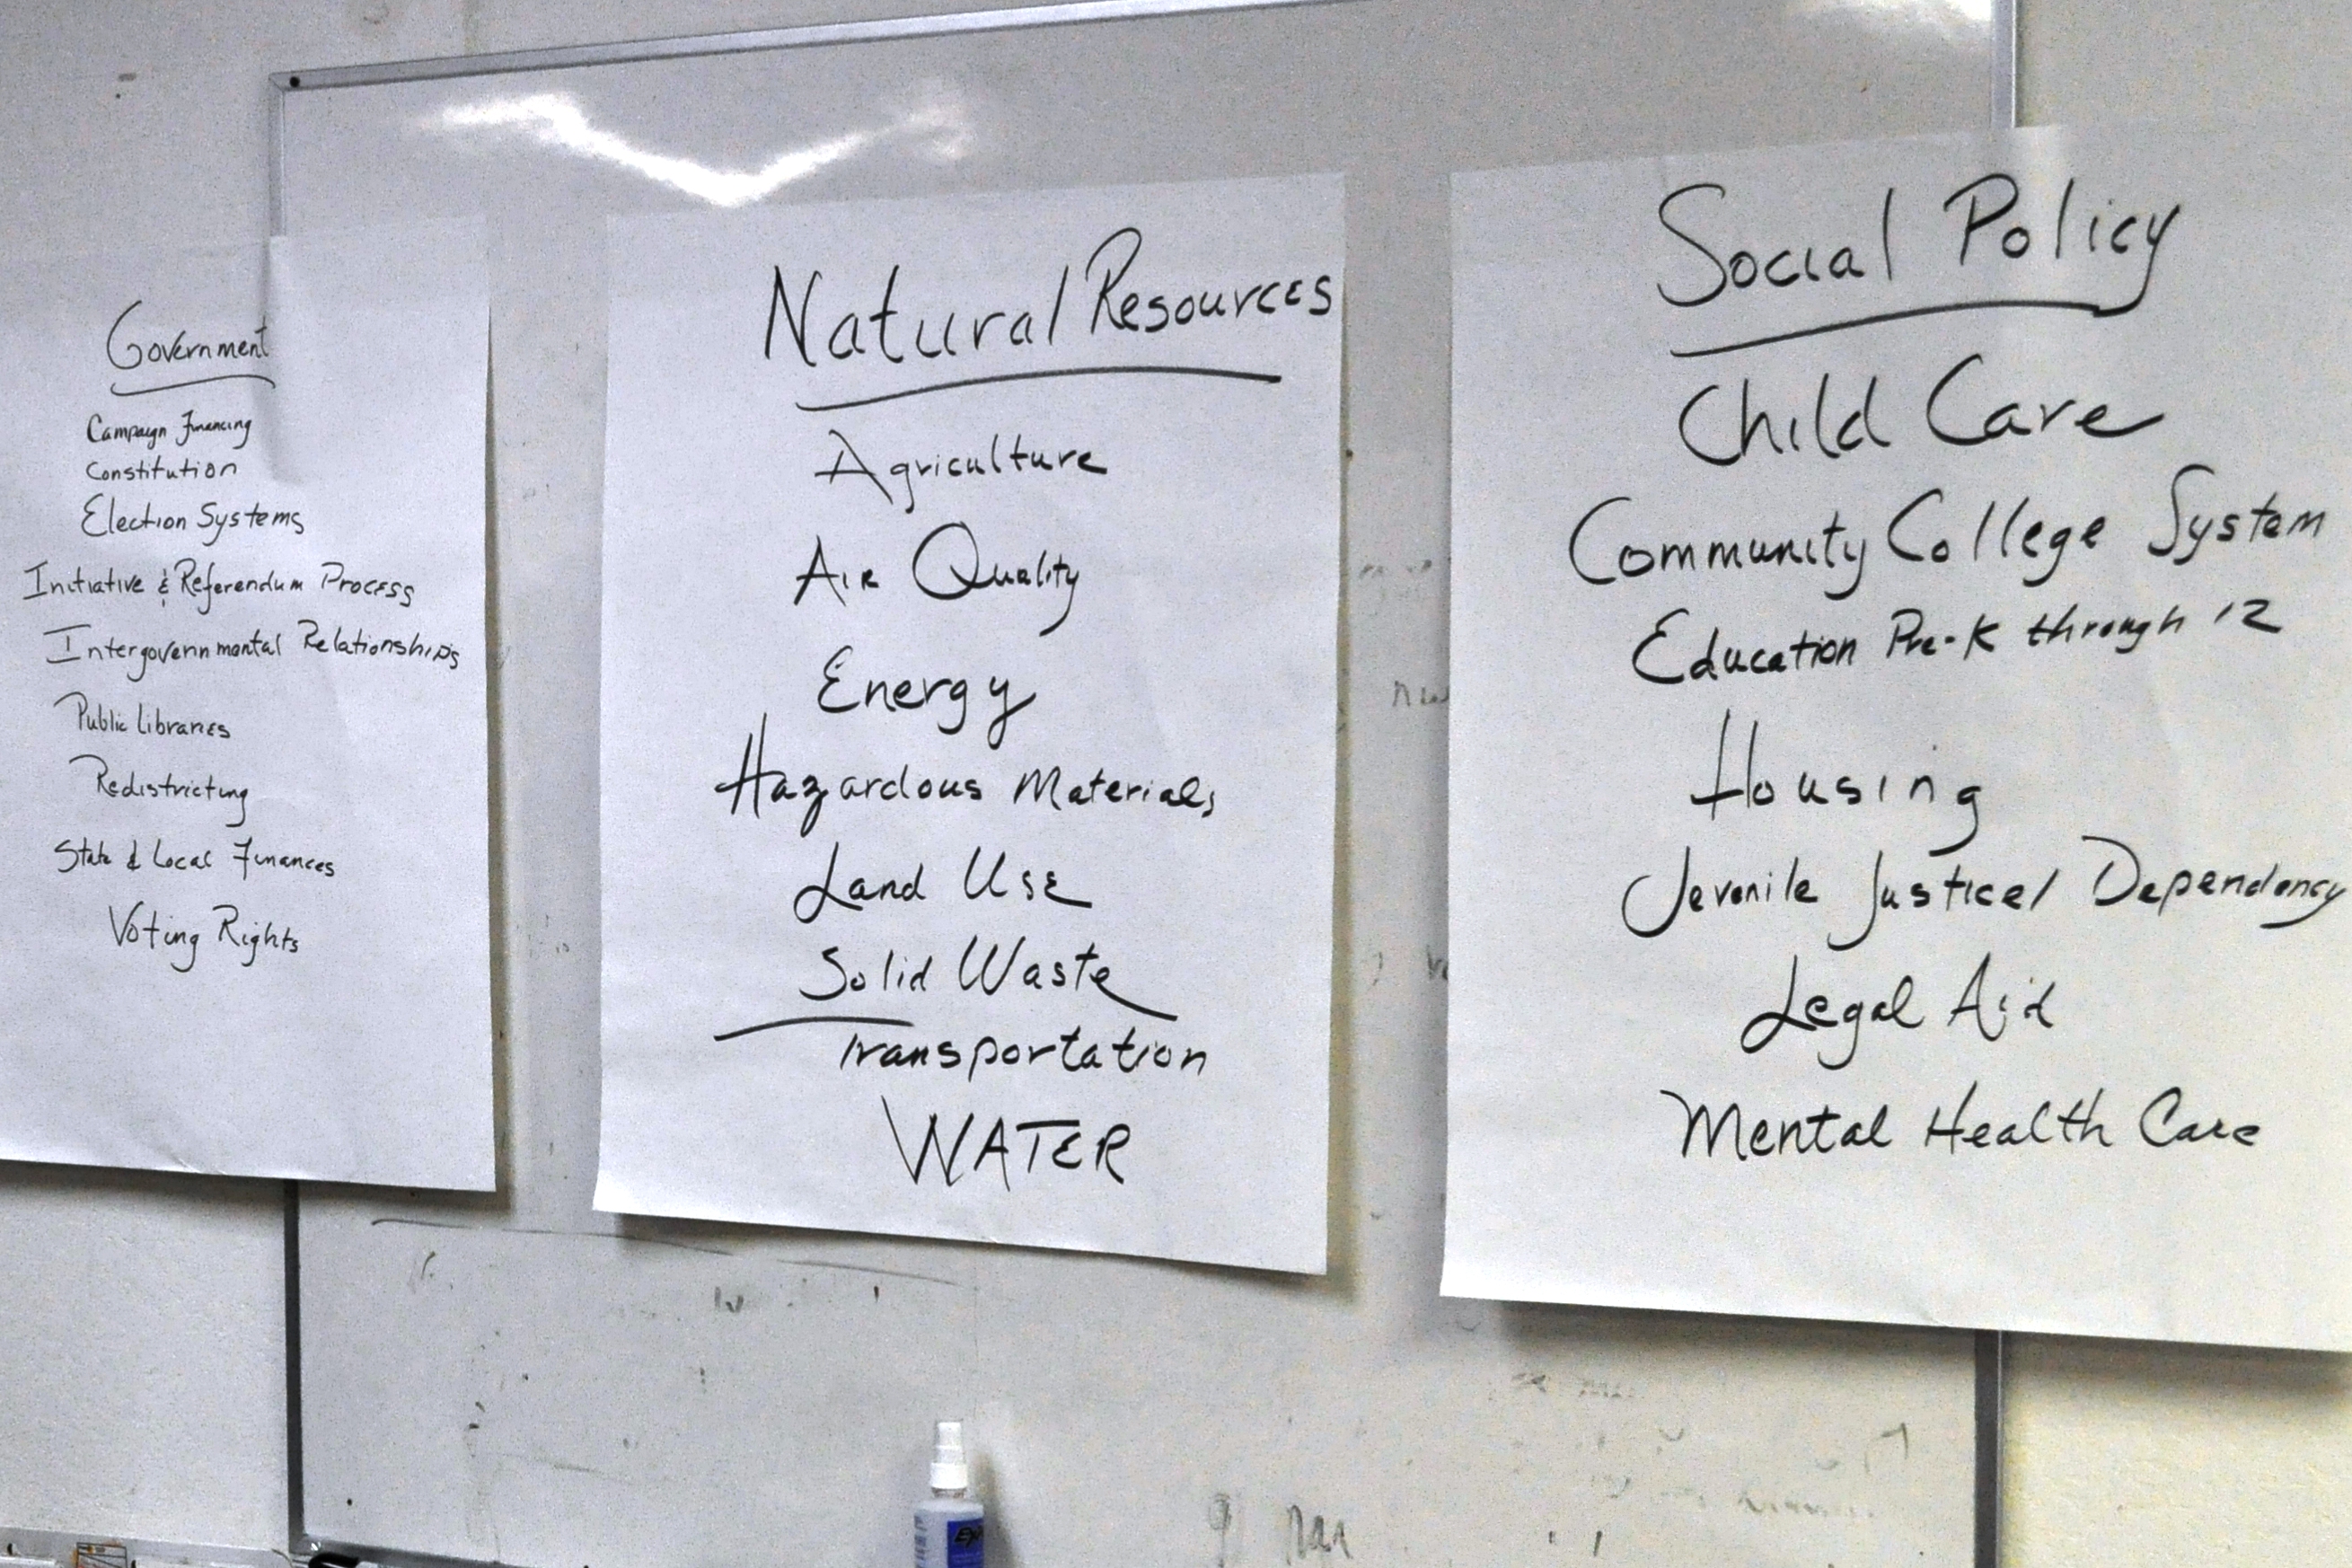 Government
Campaign Financing
Constitution
Election Systems
Initiative & Referendum Process
Intergovernmental Relationships
Public Libraries
Redistricting
State & Local Finances
Voting Rights
Natural Resources
Agriculture
Air Quality
Energy
Hazardous Materials
Land Use
Solid Waste
Transportation
WATER
Social Policy
Child Care
Community College System
Education Pre-K through 12
Housing
Jevenile Justice/ Dependency
Legal Aid
Mental Health Care